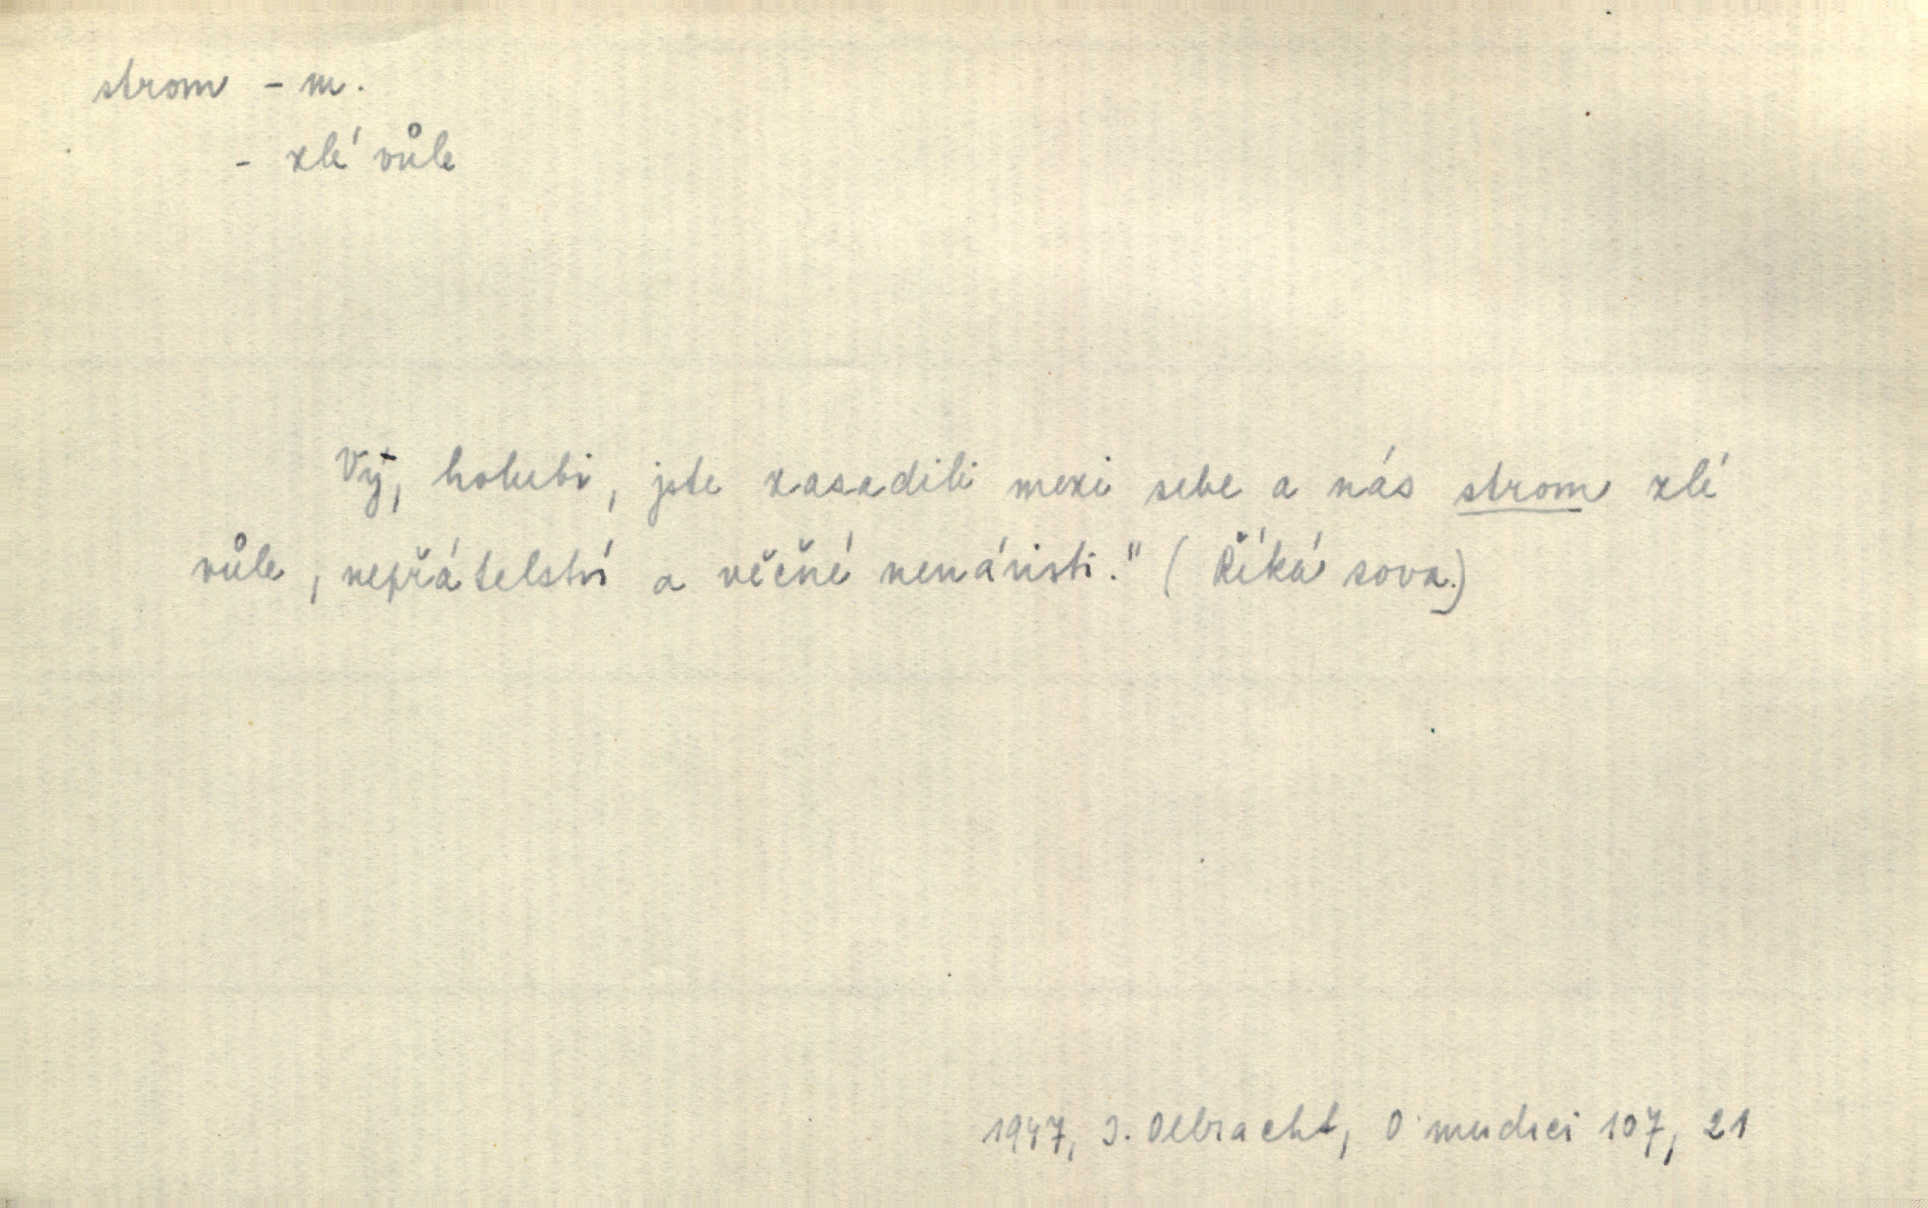 strom - m.
- zlé vůle
Vy, holubi, jste zasadili mezi sebe a nás strom zlé
vůle, nepřátelství a věčné nenávisti." (Říká sova.)
1947, I. Olbracht, O mudrci 107, 21